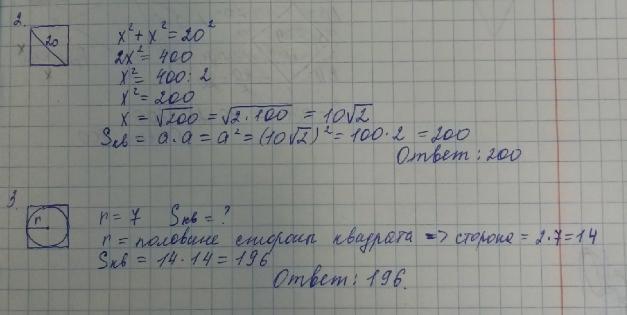 2.
20
x
x
x² + x² = 20²
2x² = 400
x² = 400 : 2
x² = 200
x = √200 = √2·100 = 10√2
Sкв = a·a = a² = (10√2)² = 100·2 = 200
Ответ: 200
3.
r
r = 7 Sкв = ?
r = половине стороны квадрата => сторона = 2·7 = 14
Sкв = 14·14 = 196
Ответ: 196.